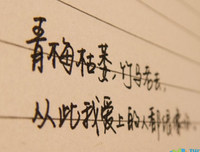 青梅枯萎，竹马老去，
从此我爱上的人都像你。